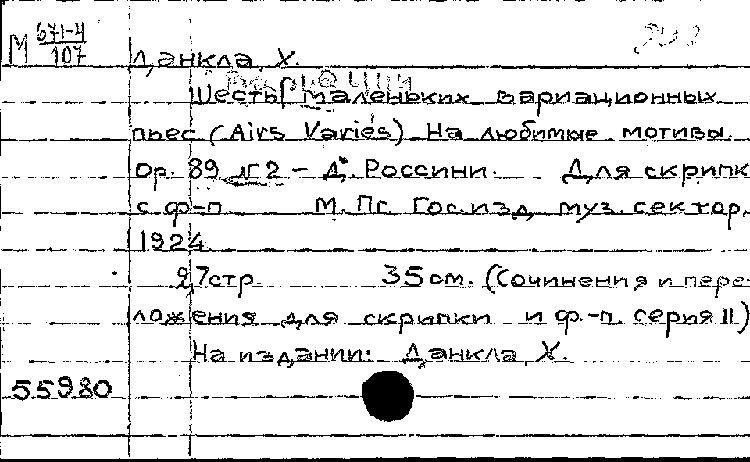 М 671-4
107
Данкла, Х.
Вариации
Шесть маленьких вариационных
пьес (Airs Variés) На любимые мотивы.
Op. 89 № 2 – Д. Россини. Для скрипк
с ф-п М. Пг. Гос. изд. муз. сектор,
1924
27 стр. 35 см. (Сочинения и пере
ложения для скрипки и ф.-п. серия II)
На издании: Данкла, Х.
55980